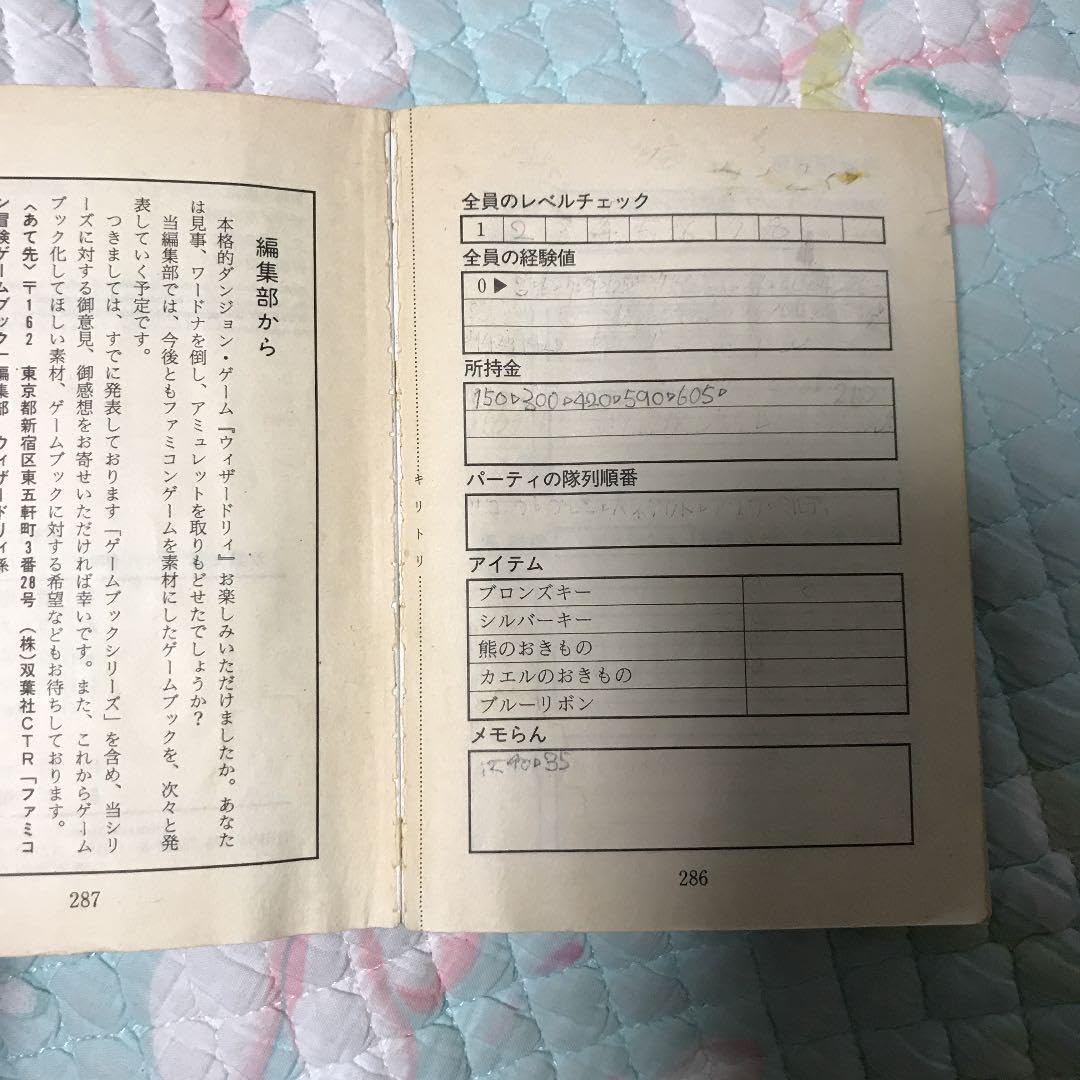 全員のレベルチェック
1 2
全員の経験値
0▶
所持金
150▷300▷420▷590▷605▷
パーティの隊列順番
アイテム
ブロンズキー
シルバーキー
熊のおきもの
カエルのおきもの
ブルーリボン
メモらん
40▷35
286
キリトリ
編集部から
本格的ダンジョン・ゲーム『ウィザードリィ』お楽しみいただけましたか。あなた
は見事、ワードナを倒し、アミュレットを取りもどせたでしょうか？
当編集部では、今後ともファミコンゲームを素材にしたゲームブックを、次々と発
表していく予定です。
つきましては、すでに発表しております「ゲームブックシリーズ」を含め、当シリ
ーズに対する御意見、御感想をお寄せいただければ幸いです。また、これからゲーム
ブック化してほしい素材、ゲームブックに対する希望などもお待ちしております。
〈あて先〉〒162 東京都新宿区東五軒町3番28号 （株）双葉社CTR「ファミコ
ン冒険ゲームブック」編集部 ウィザードリィ係
287